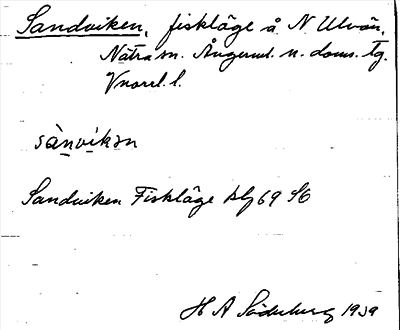 Sandviken, fiskläge å N Ulvön,
Nätra sn. Ångerml. n. doms. tg.
Vnorrl. l.
sànvikən
Sandviken Fiskläge blg 69 SO
H A Söderberg 1939